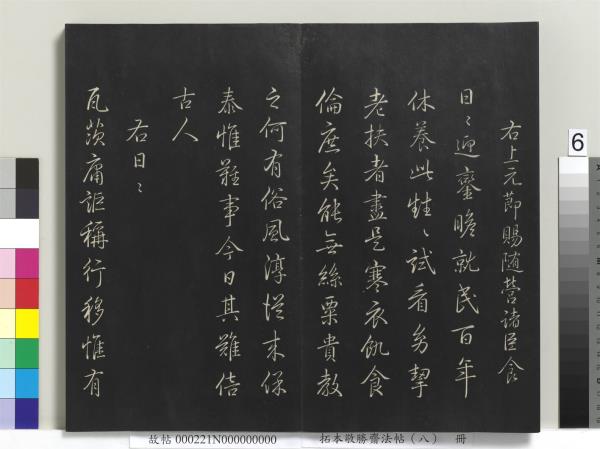 右上元節賜随營諸臣食
日〻迎鑾瞻就民百年
休養此甡〻試看幼挈
老扶者盡是寒衣飢食
倫庶矣能無絲粟貴教
之何有俗風淳從来保
泰惟艱事今日其難倍
古人
右日〻
瓦茨庸詎稱行移惟有
6
故帖 000221N000000000 拓本敬勝齋法帖(八) 冊